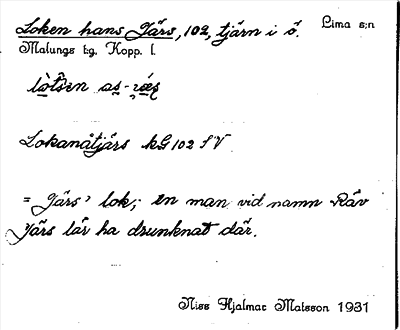 Loken hans Jårs, 102, tjärn i ö. Lima s:n
Malungs tg. Kopp. l.
Lokanåtjärs kG 102 SV
= Jårs' lok; en man vid namn Räv
Jårs lär ha drunknat där.
Niss Hjalmar Matsson 1931